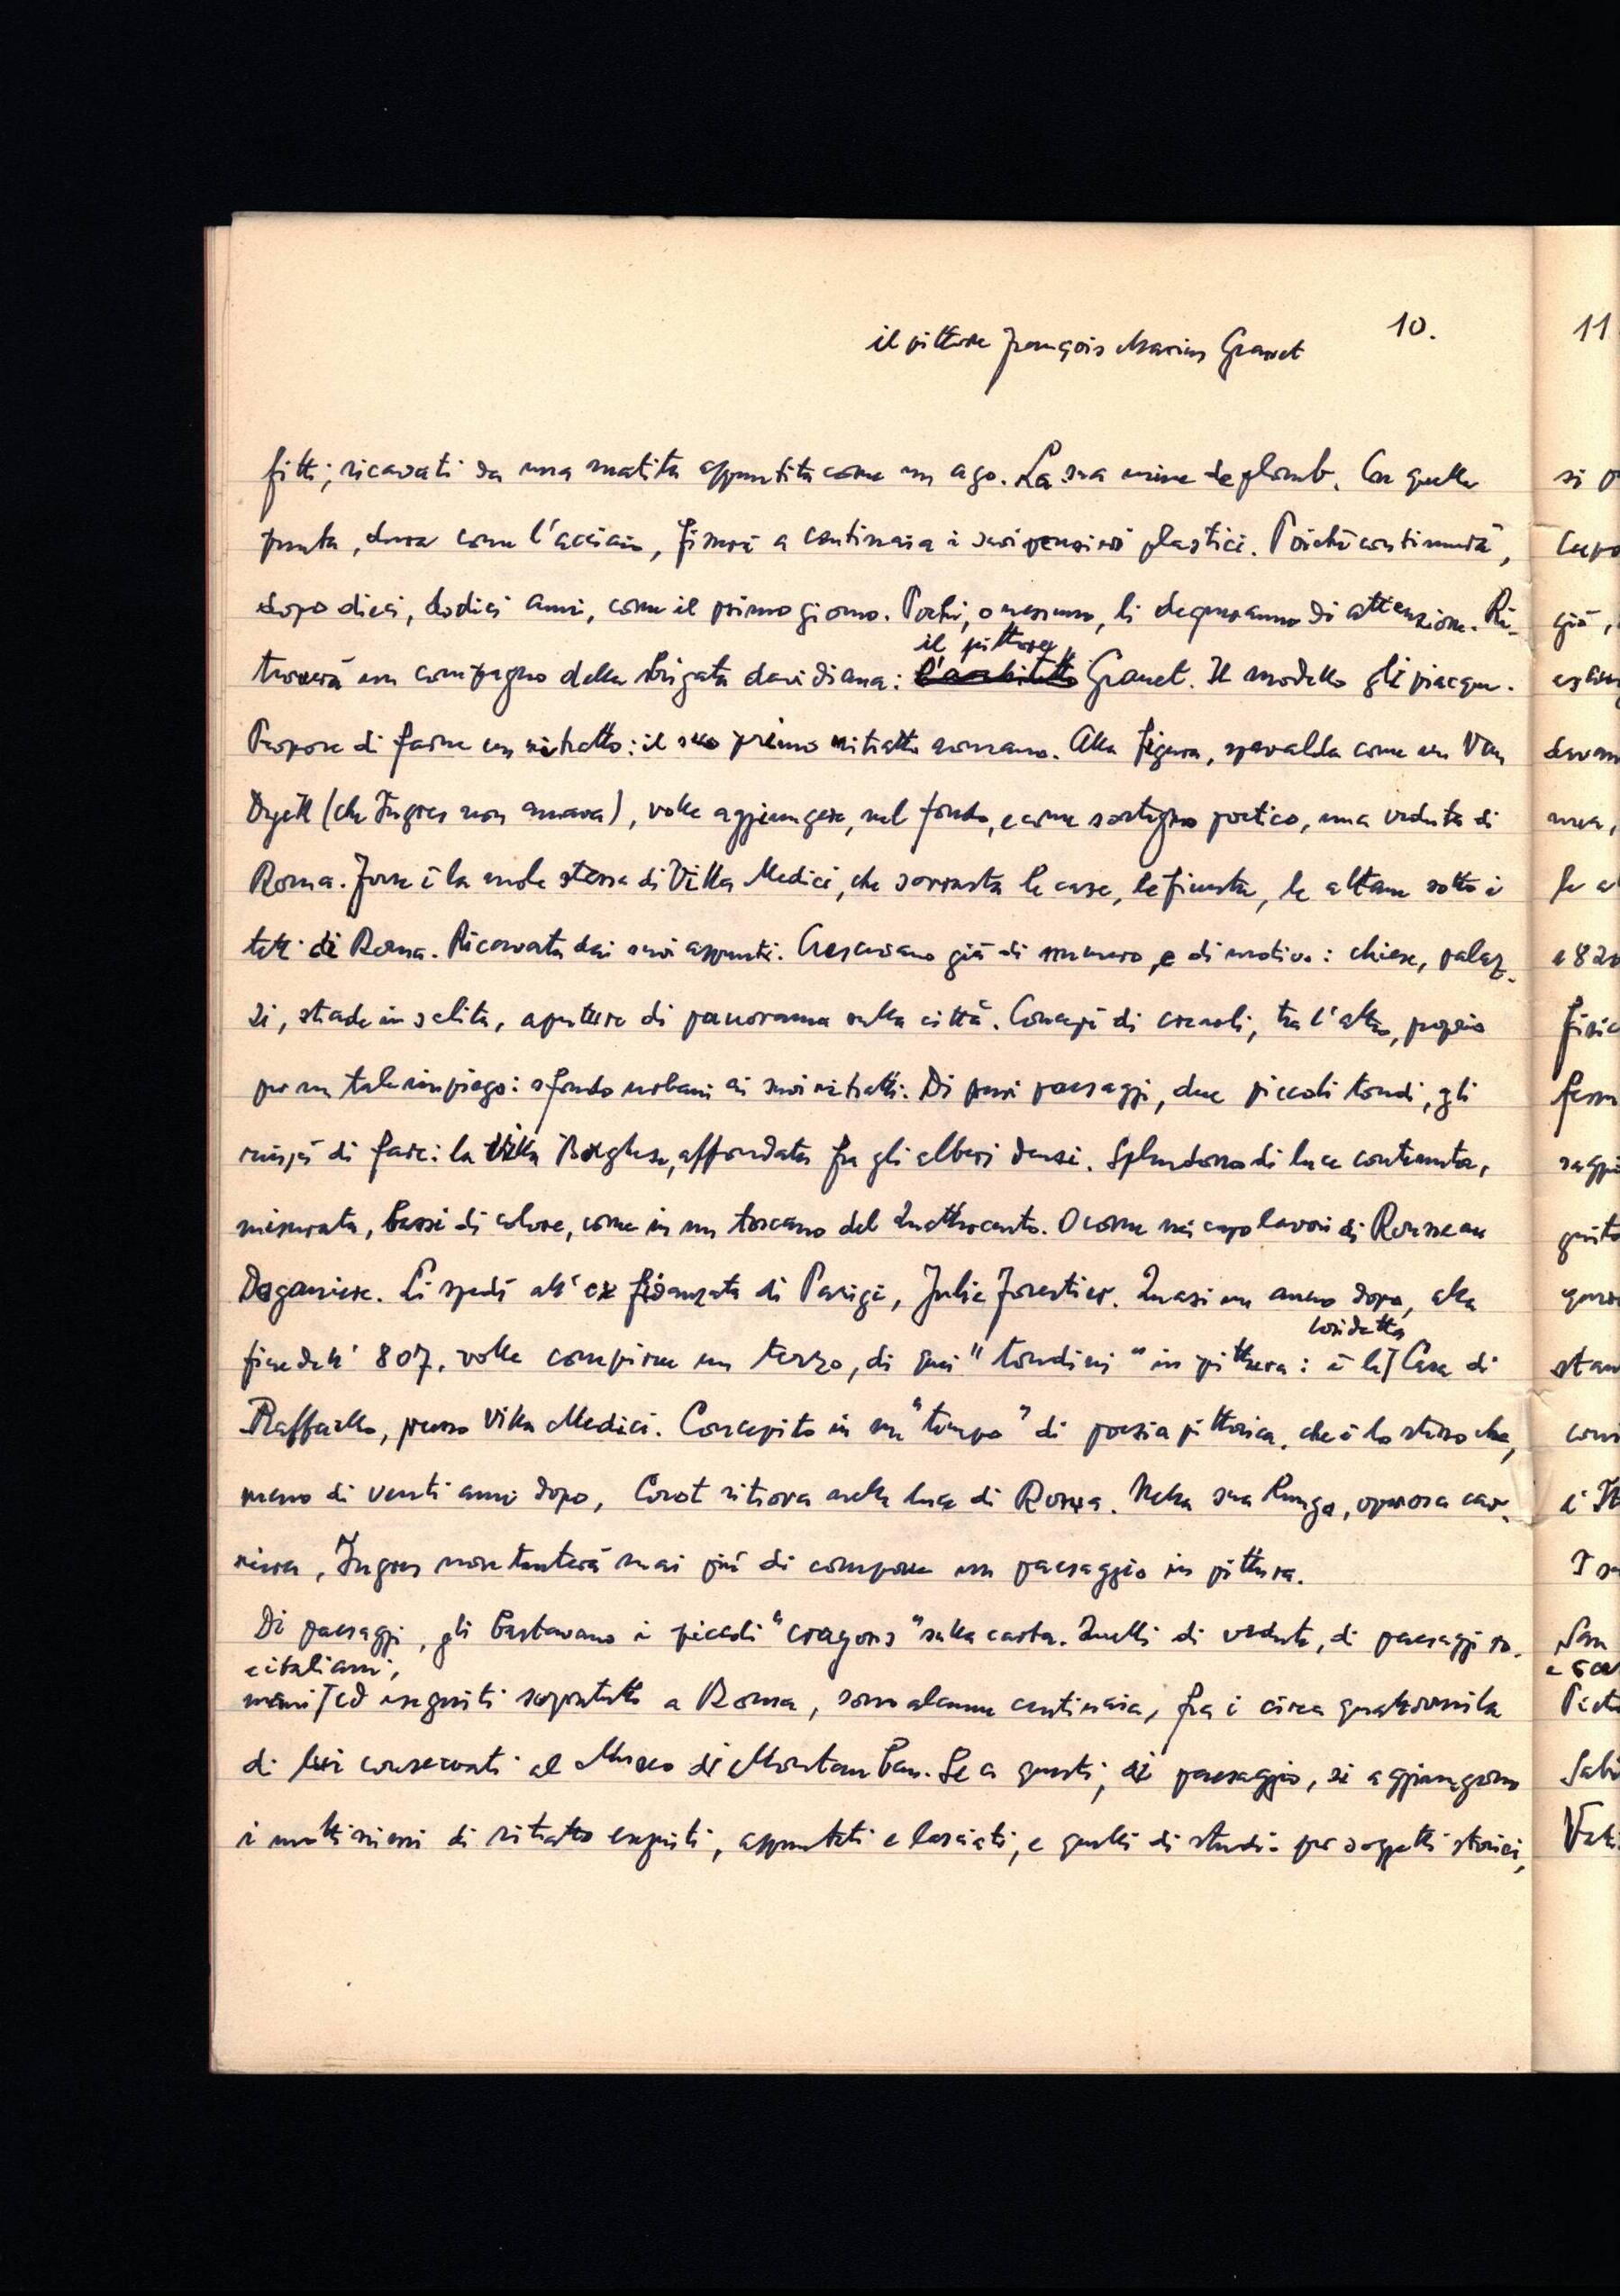 10.
il pittore François Marius Granet
fitti; ricavati da una matita appuntita come un ago. La sua mine de plomb. Con quella
punta, dura come l'acciaio, fisserà a centinaia i suoi pensieri plastici. Poiché continuerà,
dopo dieci, dodici anni, come il primo giorno. Pochi, o nessuno, li degneranno di attenzione. Ri-
il pittore
troverà un compagno della brigata davidiana: l'architetto Granet. Il modello gli piacque.
Propose di farne un ritratto: il suo primo ritratto romano. Alla figura, spavalda come un Van
Dyck (che Ingres non amava), volle aggiungere, nel fondo, e come sostegno poetico, una veduta di
Roma. Forse è la mole stessa di Villa Medici, che sovrasta le case, le finestre, le altane sotto i
tetti di Roma. Ricavata dai suoi appunti. Crescevano già di numero, e di motivo: chiese, palaz-
zi, strade in salita, aperture di panorama sulla città. Concepì di crearli, tra l'altro, proprio
per un tale impiego: sfondo urbani ai suoi ritratti. Di puri paesaggi, due piccoli tondi, gli
riuscì di fare: la Villa Borghese, affondata fra gli alberi densi. Splendono di luce contenuta,
misurata, bassi di colore, come in un toscano del Quattrocento. O come nei capolavori di Rousseau
Doganiere. Li spedì all'ex fidanzata di Parigi, Julie Forestier. Quasi un anno dopo, alla
cosidetta
fine dell' 807, volle compirne un terzo, di quei "tondini" in pittura: è la Casa di
Raffaello, presso Villa Medici. Concepito in un "tempo" di poesia pittorica, che è lo stesso che,
meno di venti anni dopo, Corot ritrova nella luce di Roma. Nella sua lunga, operosa car-
riera, Ingres non tenterà mai più di comporre un paesaggio in pittura.
Di paesaggi, gli bastavano i piccoli "crayons" sulla carta. Quelli di vedute, di paesaggi ro-
e italiani,
mani ed eseguiti soprattutto a Roma, sono alcune centinaia, fra i circa quattromila
di lui conservati al Museo di Montauban. Se a questi, di paesaggio, si aggiungono
i moltissimi di ritratto eseguiti, appuntati e lasciati, e quelli di studi per soggetti storici,
11
si
già,